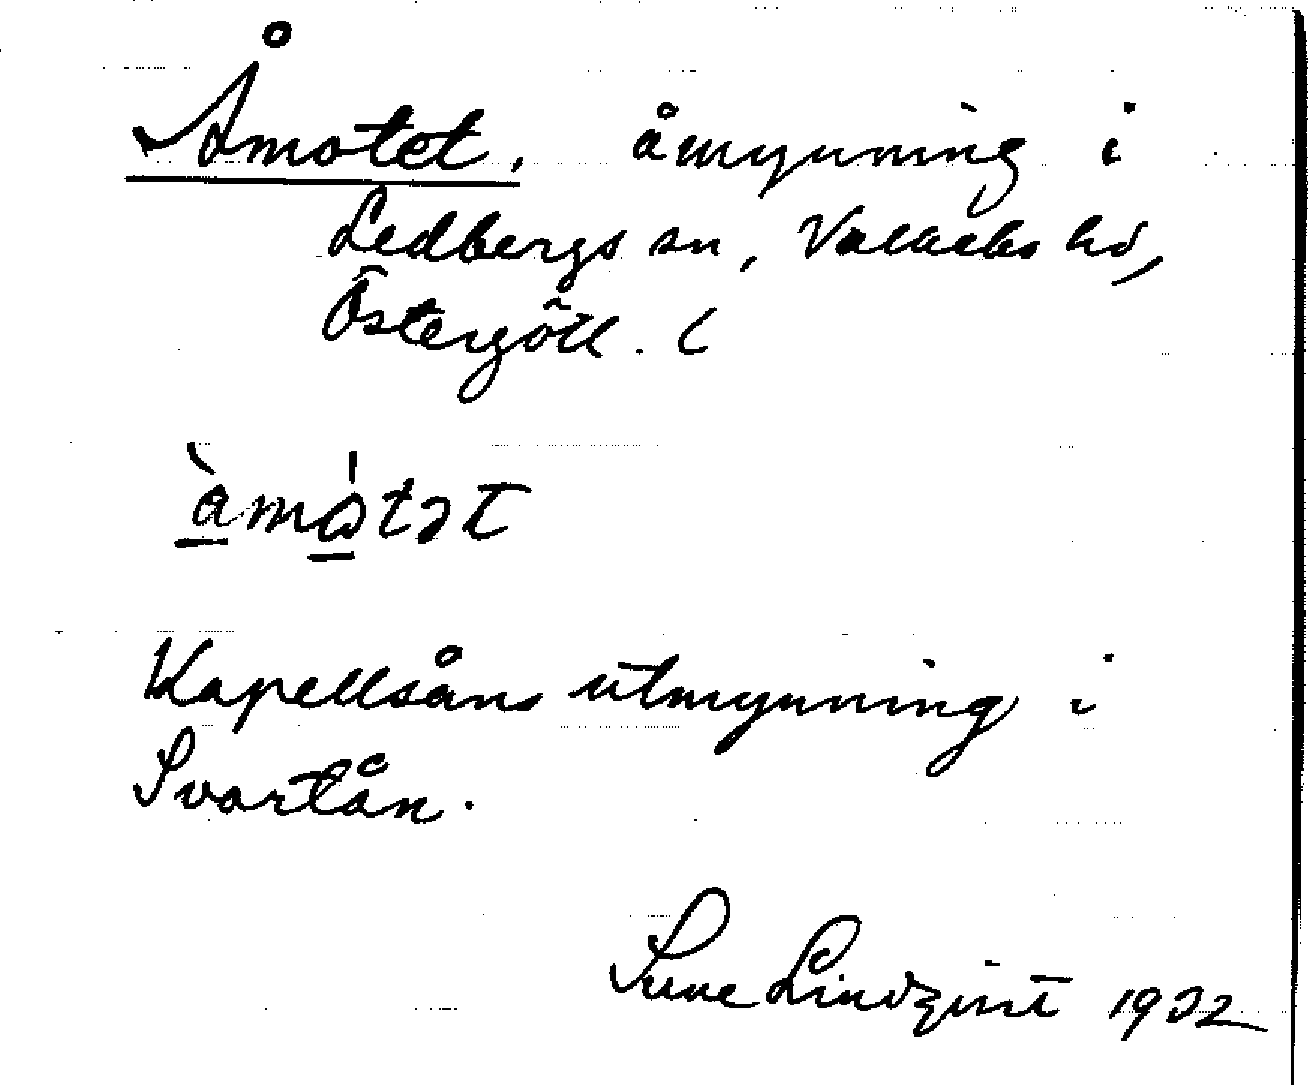 Åmotet. åmynning i
Ledbergs sn, Valkebo hd,
Östergötl. L
å̀mώtət
Kapellsåns utmynning i
Svartån.
Sune Lindqvist 1932